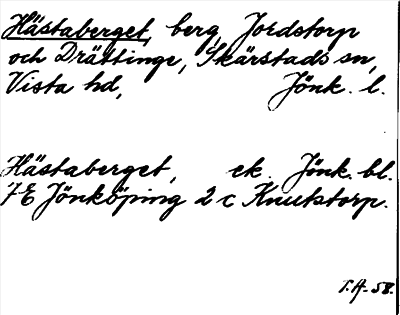 Hästaberget, berg, Jordstorp
och Drättinge, Skärstads sn,
Vista hd, Jönk. l.
Hästaberget, ek. Jönk. bl.
7E Jönköping 2 c Knutstorp.
T.H. 58.